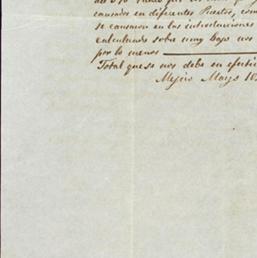 causados en diferentes Puertos, com
se causaron en las introducciones
calculados sobre muy bajo nos
por lo menos
Total que se nos debe en efecti
Mejico Marzo 18